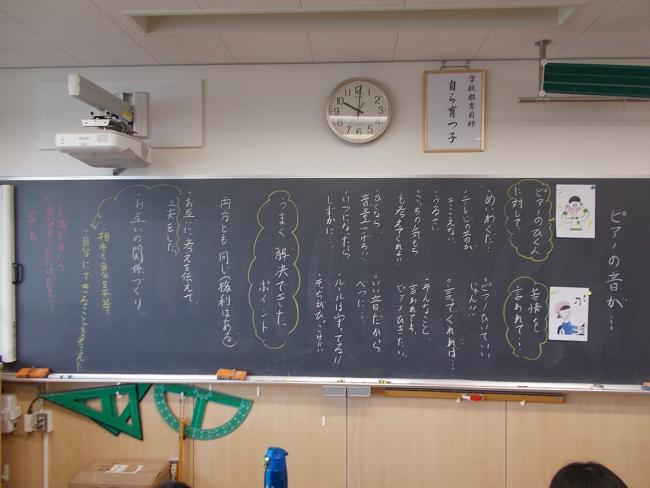 学校教育目標
自ら育つ子
ピアノの音が…
ピアノのひく人
に対して
・めいわくだ…
・テレビの音が
きこえない
・うるさい
・こっちの気もち
も考えてくれよ!!
・ひくなら
音量下げろ!!
・いつになったら
しずかに…!
苦情を
言われて…
・ピアノひいていい
じゃん!!
・言ってくれれば…
・そんなこと
言われても
ピアノひきたい。
・いい音だから
べつに…
・ルールは守ってる!!
うまく解決できた
ポイント
両方とも同じ(権利はある)
・お互いに考えを伝えて、
工夫をした
・お互いの関係づくり
相手と自分平等
・自分にできることも考えた